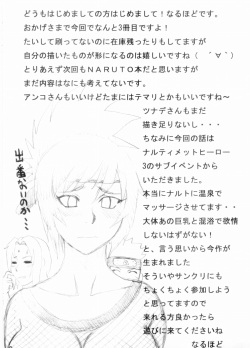 どうもはじめましての方はじめまして！なるほどです。
おかげさまで今回でなんと3冊目ですよ！
たいして刷ってないのに在庫残ったりもしてますが
自分の描いたものが形になるのは嬉しいですね（ ´∀`）
とりあえず次回もＮＡＲＵＴＯ本だと思いますが
まだ内容はなにも考えてないです。
アンコさんもいいけどたまにはテマリとかもいいですね～
ツナデさんもまだ
描き足りないし・・・
ちなみに今回の話は
ナルティメットヒーロー
3のサブイベントから
いただきました。
本当にナルトに温泉で
マッサージさせてます・・・
大体あの巨乳と混浴で欲情
しないはずがない！
と、言う思いから今作が
生まれました
そういやサンクリにも
ちょくちょく参加しよう
と思ってますので
来れる方良かったら
遊びに来てくださいね
なるほど
出番ないのか・・・